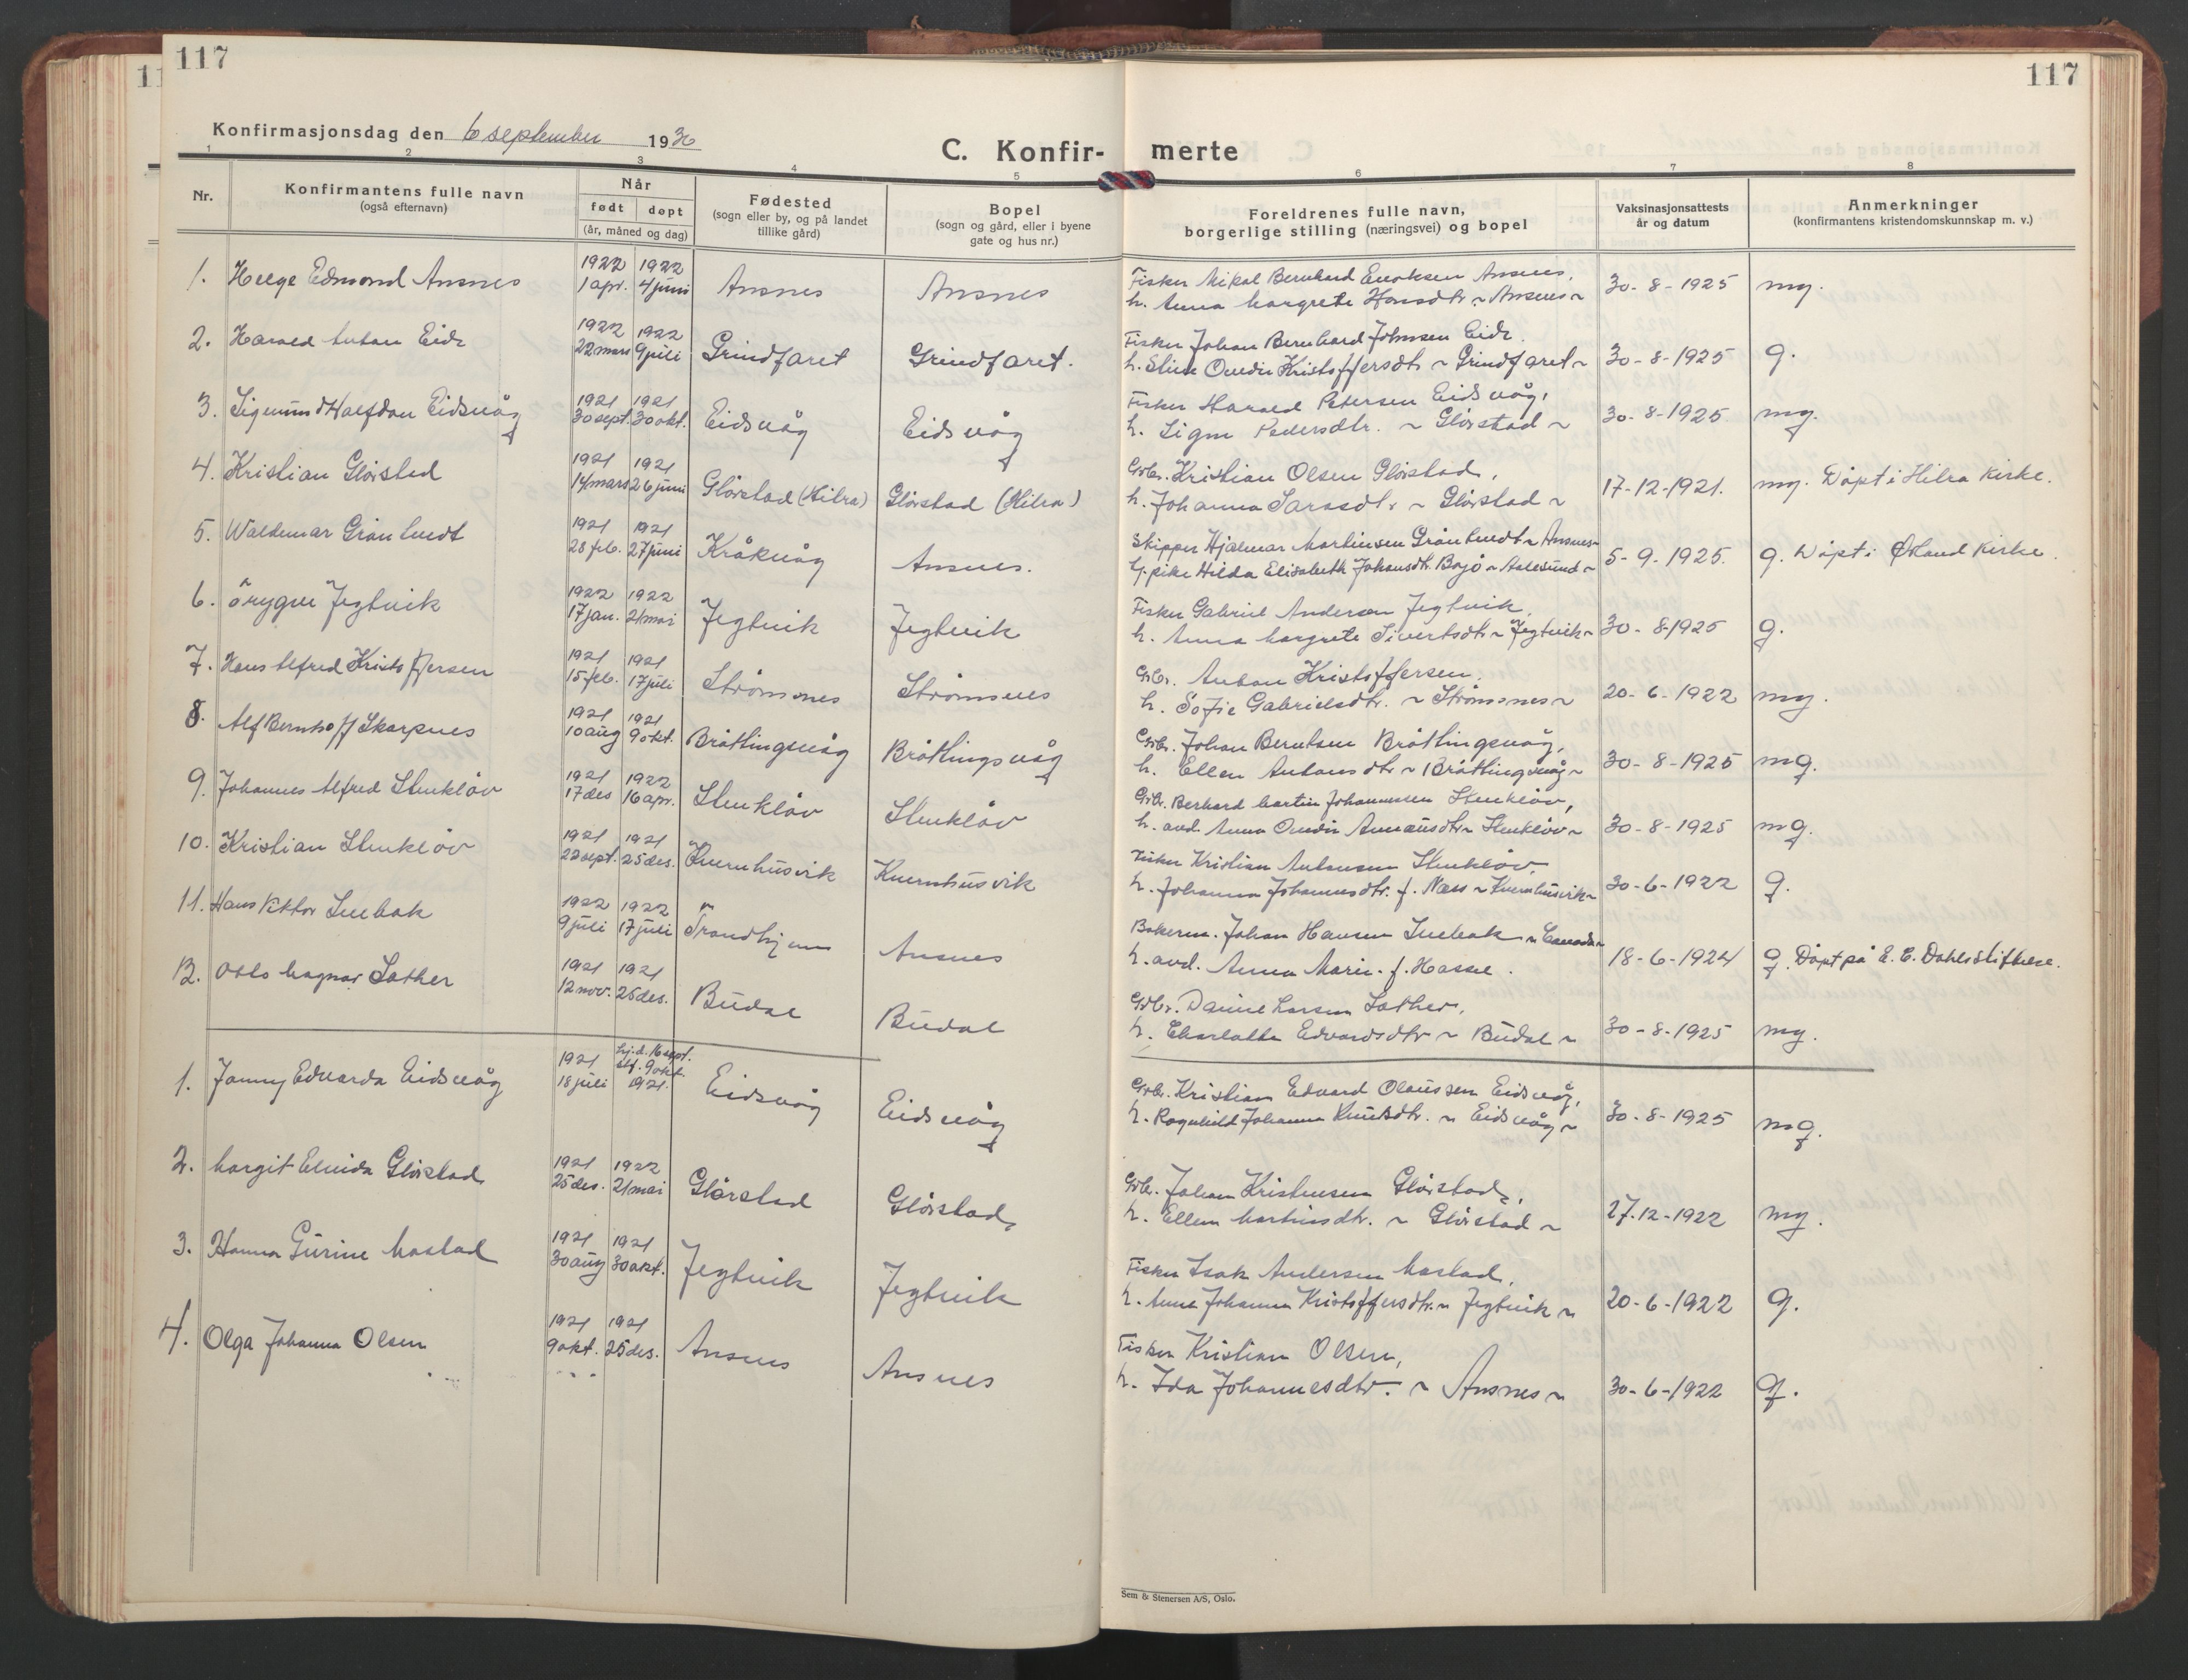 117
117
Konfirmasjonsdag den 6 september 1936
C. Konfir- merte
1 2 3 4 5 6 7 8
Nr.
Konfirmantens fulle navn
(også efternavn)
Når
født døpt
(år, måned og dag)
Fødested
(sogn eller by, og på landet
tillike gård)
Bopel
(sogn og gård, eller i byene
gate og hus nr.)
Foreldrenes fulle navn,
borgerlige stilling (næringsvei) og bopel
Vaksinasjonsattests
år og datum
Anmerkninger
(konfirmantens kristendomskunnskap m. v.)
1. Helge Edmond Ansnes 1922 1 apr. 1922 4 juni Ansnes Ansnes
Fisker Mikal Bernhard Enoksen Ansnes,
h. Anna Margrete Hansdtr ~ Ansnes ~ 30-8-1925 mg.
2. Harald Anton Eide 1922 22 mars 1922 9 juli Grindfaret Grindfaret.
Fisker Johan Bernhard Johnsen Eide.
h. Stine Ovedie Kristoffersdtr ~ Grindfaret ~ 30-8-1925 g.
3. Sigmund Halfdan Eidsvåg 1921 30 sept. 1921 30 okt. Eidsvåg Eidsvåg
Fisker Harald Petersen Eidsvåg,
h. Signe Pedersdtr. ~ Glørstad ~ 30-8-1925 mg.
4. Kristian Glørstad 1921 14 mars 1921 26 juni Glørstad (Hitra) Glørstad (Hitra)
Grbr. Kristian Olsen Glørstad,
h. Johanna Larsdtr ~ Glørstad ~ 17-12-1921. mg. Døpt i Hitra kirke.
5. Waldemar Grønlundt 1921 28 feb. 1921 27 juni Kråkvåg Ansnes.
Skipper Hjalmar Martinsen Grønlundt ~ Ansnes ~
pike Hilda Elisabeth Johansdtr. Bojø ~ Aalesund ~ 5-9-1925. g. Døpt i Ørland kirke.
6. Ørygen Jegtvik 1922 17 jan. 1922 21 mai Jegtvik Jegtvik
Fisker Gabriel Andersen Jegtvik,
h. Anna Margrete Sivertsdtr ~ Jegtvik ~ 30-8-1925 g.
7. Hans Alfred Kristoffersen 1921 15 feb. 1921 17 juli Strømsnes Strømsnes
Grbr. Anton Kristoffersen,
h. Sofie Gabrielsdtr. ~ Strømsnes ~ 20-6-1922 mg.
8. Alf Bernhoff Skarpnes 1921 10 aug 1921 9 okt. Bråttingsvåg Bråttingsvåg
Grbr. Johan Berntsen Bråttingsvåg,
h. Ellen Antonsdtr ~ Bråttingsvåg ~ 30-8-1925 mg.
9. Johannes Alfred Stenkløv 1921 17 des 1922 16 apr. Stenkløv Stenkløv
Grbr. Berhard Martin Johannessen Stenkløv,
h. avd. Anna Ovedie Annæusdtr ~ Stenkløv ~ 30-8-1925 mg.
10. Kristian Stenkløv 1921 22 sept. 1921 25 des. Kvernhusvik Kvernhusvik
Fisker Kristian Antonsen Stenkløv,
h. Johanna Johannesdtr. f. Næss ~ Kvernhusvik ~ 30-6-1922 g.
11. Hans Viktor Snebak 1922 9 juli 1922 17 juli Trondhjem Ansnes
Bakerm. Johan Hansen Snebak ~ Canada ~
h. avd. Anna Marie. f. Hassel. 18-6-1924 g. Døpt på E. C. Dahls Stiftelse.
12. Otto Magnar Sather 1921 12 nov. 1921 25 des. Budal Budal
Grbr. Daniel Larsen Sather,
h. Charlotta Edvardsdtr ~ Budal ~ 30-8-1925 mg.
1. Janny Edvarda Eidsvåg 1921 18 juli hj.d. 16 sept. stf. 9 okt. 1921. Eidsvåg Eidsvåg
Grbr. Kristian Edvard Olaussen Eidsvåg,
h. Ragnhild Johanna Knutsdtr. ~ Eidsvåg ~ 30-8-1925 mg.
2. Margit Elvida Glørstad 1921 25 des. 1922 21 mai Glørstad Glørstad
Grbr. Johan Kristensen Glørstad,
h. Ellen Martinsdtr. ~ Glørstad ~ 27-12-1922 mg.
3. Hanna Gurine Mastad 1921 30 aug 1921 30 okt. Jegtvik Jegtvik
Fisker Isak Andersen Mastad,
h. Anna Johanna Kristoffersdtr. ~ Jegtvik ~ 20-6-1922 g.
4. Olga Johanna Olsen 1921 9 okt. 1921 25 des. Ansnes Ansnes
Fisker Kristian Olsen,
h. Ida Johannesdtr. ~ Ansnes ~ 30-6-1922 g.
Sem & Stenersen A/S, Oslo.